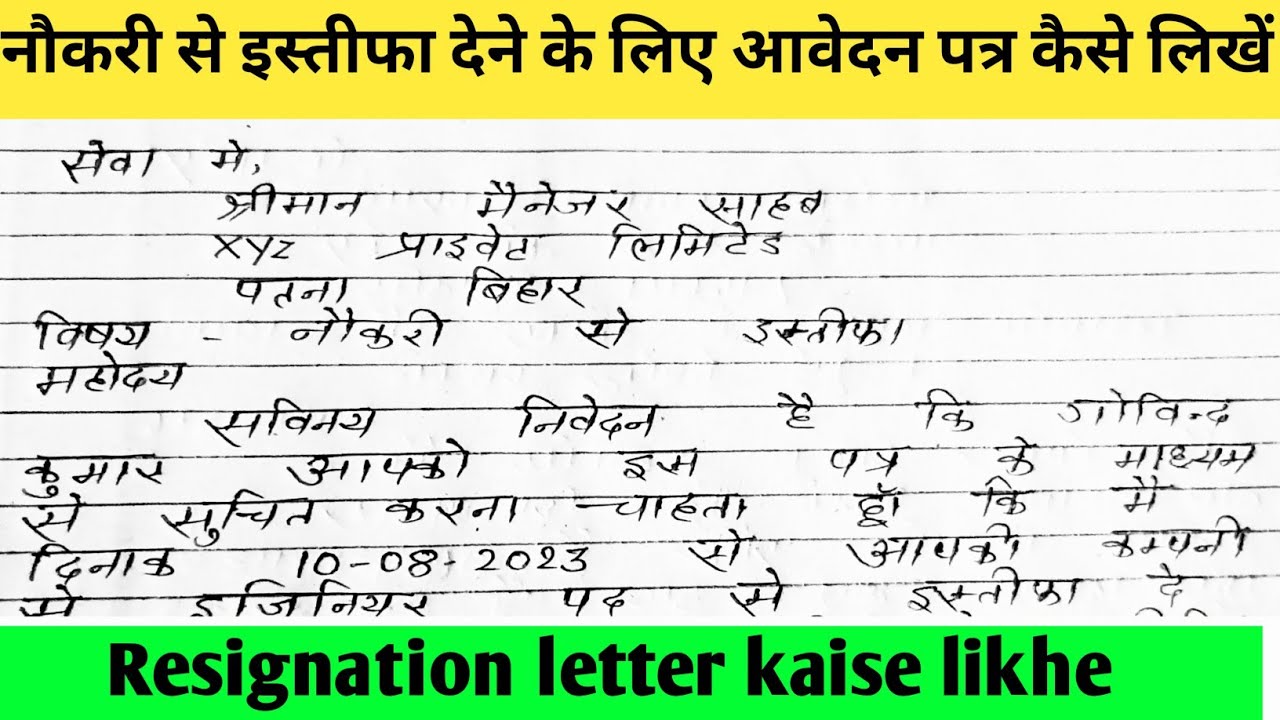 नौकरी से इस्तीफा देने के लिए आवेदन पत्र कैसे लिखें
सेवा मे,
श्रीमान मैनेजर साहब
xyz प्राइवेट लिमिटेड
पतना बिहार
विषय - नौकरी से इस्तीफा
महोदय
सविनय निवेदन है कि गोविन्द
कुमार आपको इस पत्र के माध्यम
से सुचित करना चाहता हूँ कि मै
दिनाक 10-08-2023 से आपकी कम्पनी
मे इजिनियर पद से इस्तीफा दे
Resignation letter kaise likhe